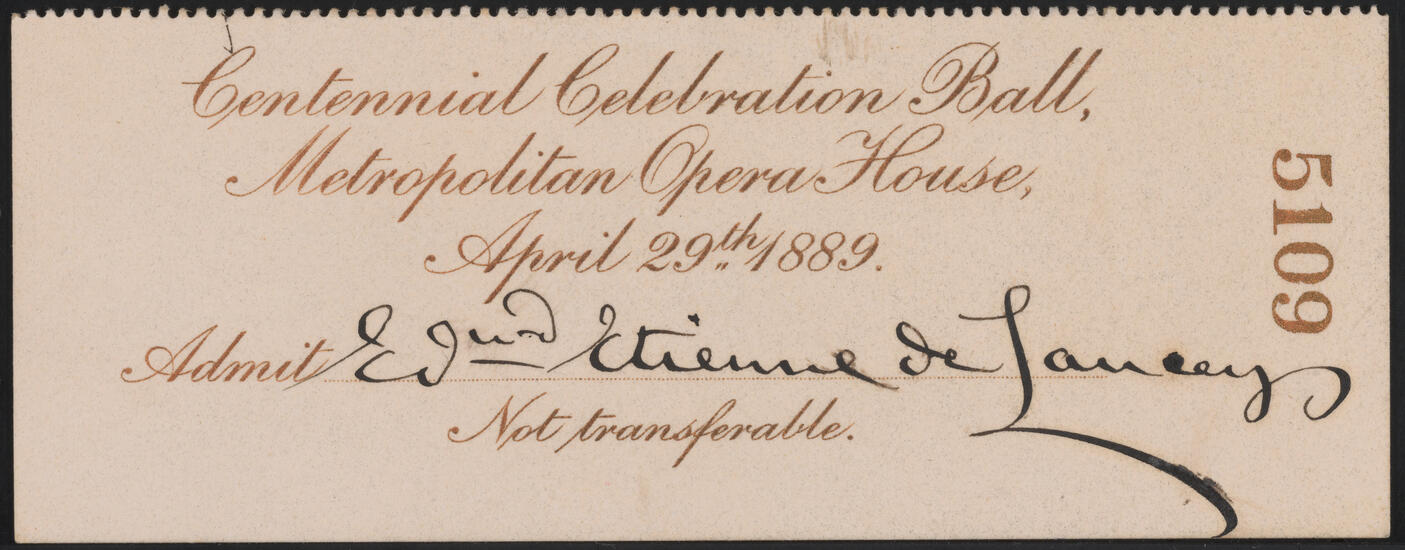 Centennial Celebration Ball,
Metropolitan Opera House,
April 29th 1889.
Admit Edwd Etienne de Lancey
Not transferable.
5109